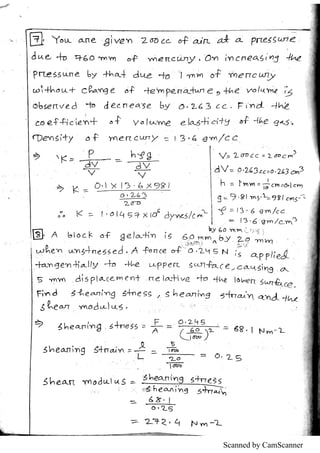 7. You are given 200 cc of air at a pressure
due to 760 mm of mercury. On increasing the
pressure by that due to 1 mm of mercury
without change of temperature, the volume is
observed to decrease by 0.263 cc. Find the
coefficient of volume elasticity of the gas.
Density of mercury = 13.6 gm/cc
⇒ K = P / (dV/V) = hρg / (dV/V)
V = 200 cc = 200 cm³
dV = 0.263 cc = 0.263 cm³
h = 1 mm = 1/10 cm = 0.1 cm
g = 9.81 ms⁻² = 981 cms⁻²
ρ = 13.6 gm/cc
= 13.6 gm/cm³
⇒ K = (0.1 × 13.6 × 981) / (0.263/200)
∴ K = 1.01457 × 10⁶ dynes/cm²
8. A block of gelatin is 60 mm by 60 mm by 20 mm
when unstressed. A force of 0.245 N is applied
tangentially to the upper surface, causing a
5 mm displacement relative to the lower surface.
Find shearing stress, shearing strain and the
shear modulus.
⇒ Shearing stress = F/A = 0.245 / (60/1000)² = 68.1 Nm⁻²
Shearing strain = l/L = (5/1000) / (20/1000) = 0.25
Shear modulus = Shearing stress / Shearing strain
= 68.1 / 0.25
= 272.4 Nm⁻²
Scanned by CamScanner